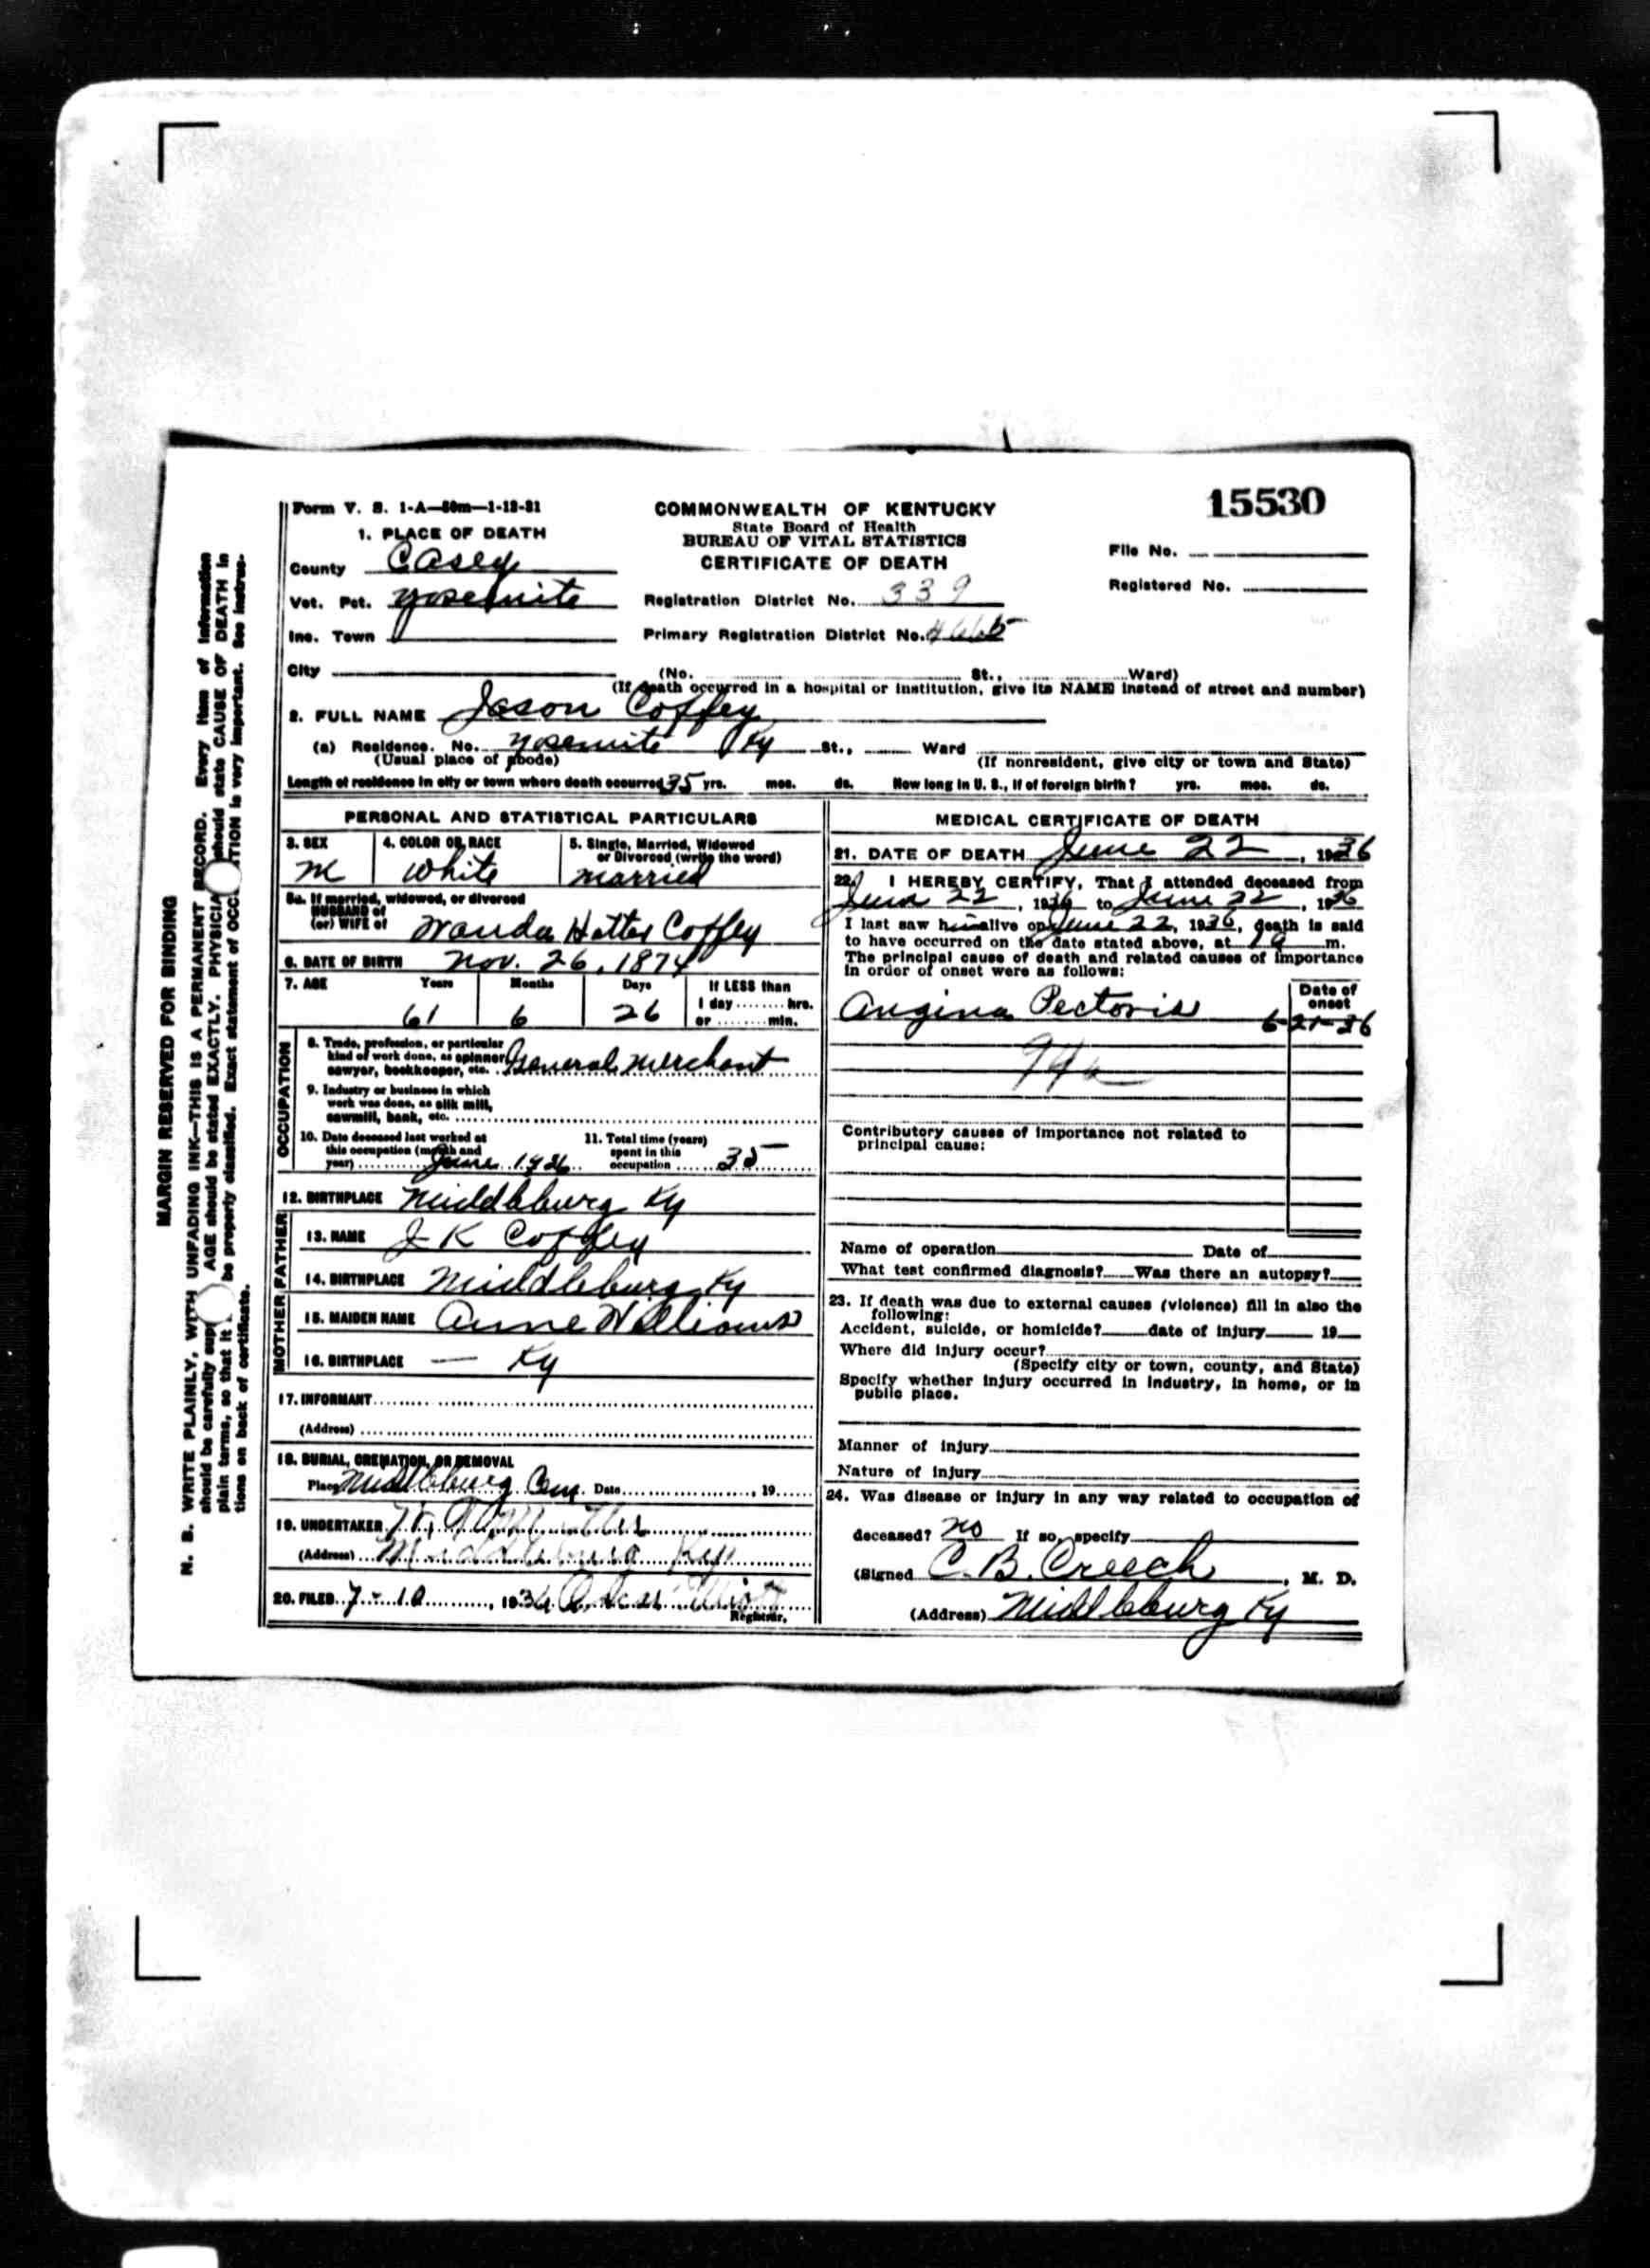 Form V. S. 1-A—50m—1-12-31
COMMONWEALTH OF KENTUCKY
State Board of Health
BUREAU OF VITAL STATISTICS
CERTIFICATE OF DEATH
15530
File No.
Registered No.
1. PLACE OF DEATH
County Casey
Vot. Pct. Yosemite
Inc. Town
Registration District No. 339
Primary Registration District No.
City (No. St., Ward)
(If death occurred in a hospital or institution, give its NAME instead of street and number)
2. FULL NAME Jason Coffey
(a) Residence. No. Yosemite Ky St., Ward
(Usual place of abode) (If nonresident, give city or town and State)
Length of residence in city or town where death occurred 35 yrs. mos. ds. How long in U. S., if of foreign birth? yrs. mos. ds.
PERSONAL AND STATISTICAL PARTICULARS
3. SEX 4. COLOR OR RACE 5. Single, Married, Widowed
or Divorced (write the word)
M White married
5a. If married, widowed, or divorced
HUSBAND of
(or) WIFE of Wanda Hatter Coffey
6. DATE OF BIRTH Nov. 26, 1874
7. AGE Years Months Days If LESS than
1 day ........ hrs.
61 6 26 or ........ min.
OCCUPATION
8. Trade, profession, or particular
kind of work done, as spinner,
sawyer, bookkeeper, etc. General Merchant
9. Industry or business in which
work was done, as silk mill,
sawmill, bank, etc.
10. Date deceased last worked at
this occupation (month and
year) June 1936
11. Total time (years)
spent in this
occupation 35
12. BIRTHPLACE Middleburg Ky
FATHER
13. NAME J K Coffey
14. BIRTHPLACE Middleburg Ky
MOTHER
15. MAIDEN NAME Anne Williams
16. BIRTHPLACE — Ky
17. INFORMANT
(Address)
18. BURIAL, CREMATION, OR REMOVAL
Place Middleburg Cem. Date , 19
19. UNDERTAKER
(Address) Middleburg Ky
20. FILED 7-10, 1936 Oscar Elliott
Registrar.
MEDICAL CERTIFICATE OF DEATH
21. DATE OF DEATH June 22, 1936
22. I HEREBY CERTIFY, That I attended deceased from
June 22, 1936 to June 22, 1936
I last saw him alive on June 22, 1936, death is said
to have occurred on the date stated above, at m.
The principal cause of death and related causes of importance
in order of onset were as follows:
Date of
onset
Angina Pectoris 6-21-36
94a
Contributory causes of importance not related to
principal cause:
Name of operation Date of
What test confirmed diagnosis? Was there an autopsy?
23. If death was due to external causes (violence) fill in also the
following:
Accident, suicide, or homicide? date of injury 19
Where did injury occur?
(Specify city or town, county, and State)
Specify whether injury occurred in industry, in home, or in
public place.
Manner of injury
Nature of injury
24. Was disease or injury in any way related to occupation of
deceased? no If so, specify
(Signed C. B. Creech, M. D.
(Address) Middleburg Ky
MARGIN RESERVED FOR BINDING
N. B. WRITE PLAINLY, WITH UNFADING INK—THIS IS A PERMANENT RECORD. Every item of information
should be carefully AGE should be stated EXACTLY. PHYSICIA should state CAUSE OF DEATH in
plain terms, so that it be properly classified. Exact statement of OCC TION is very important. See instruc-
tions on back of certificate.